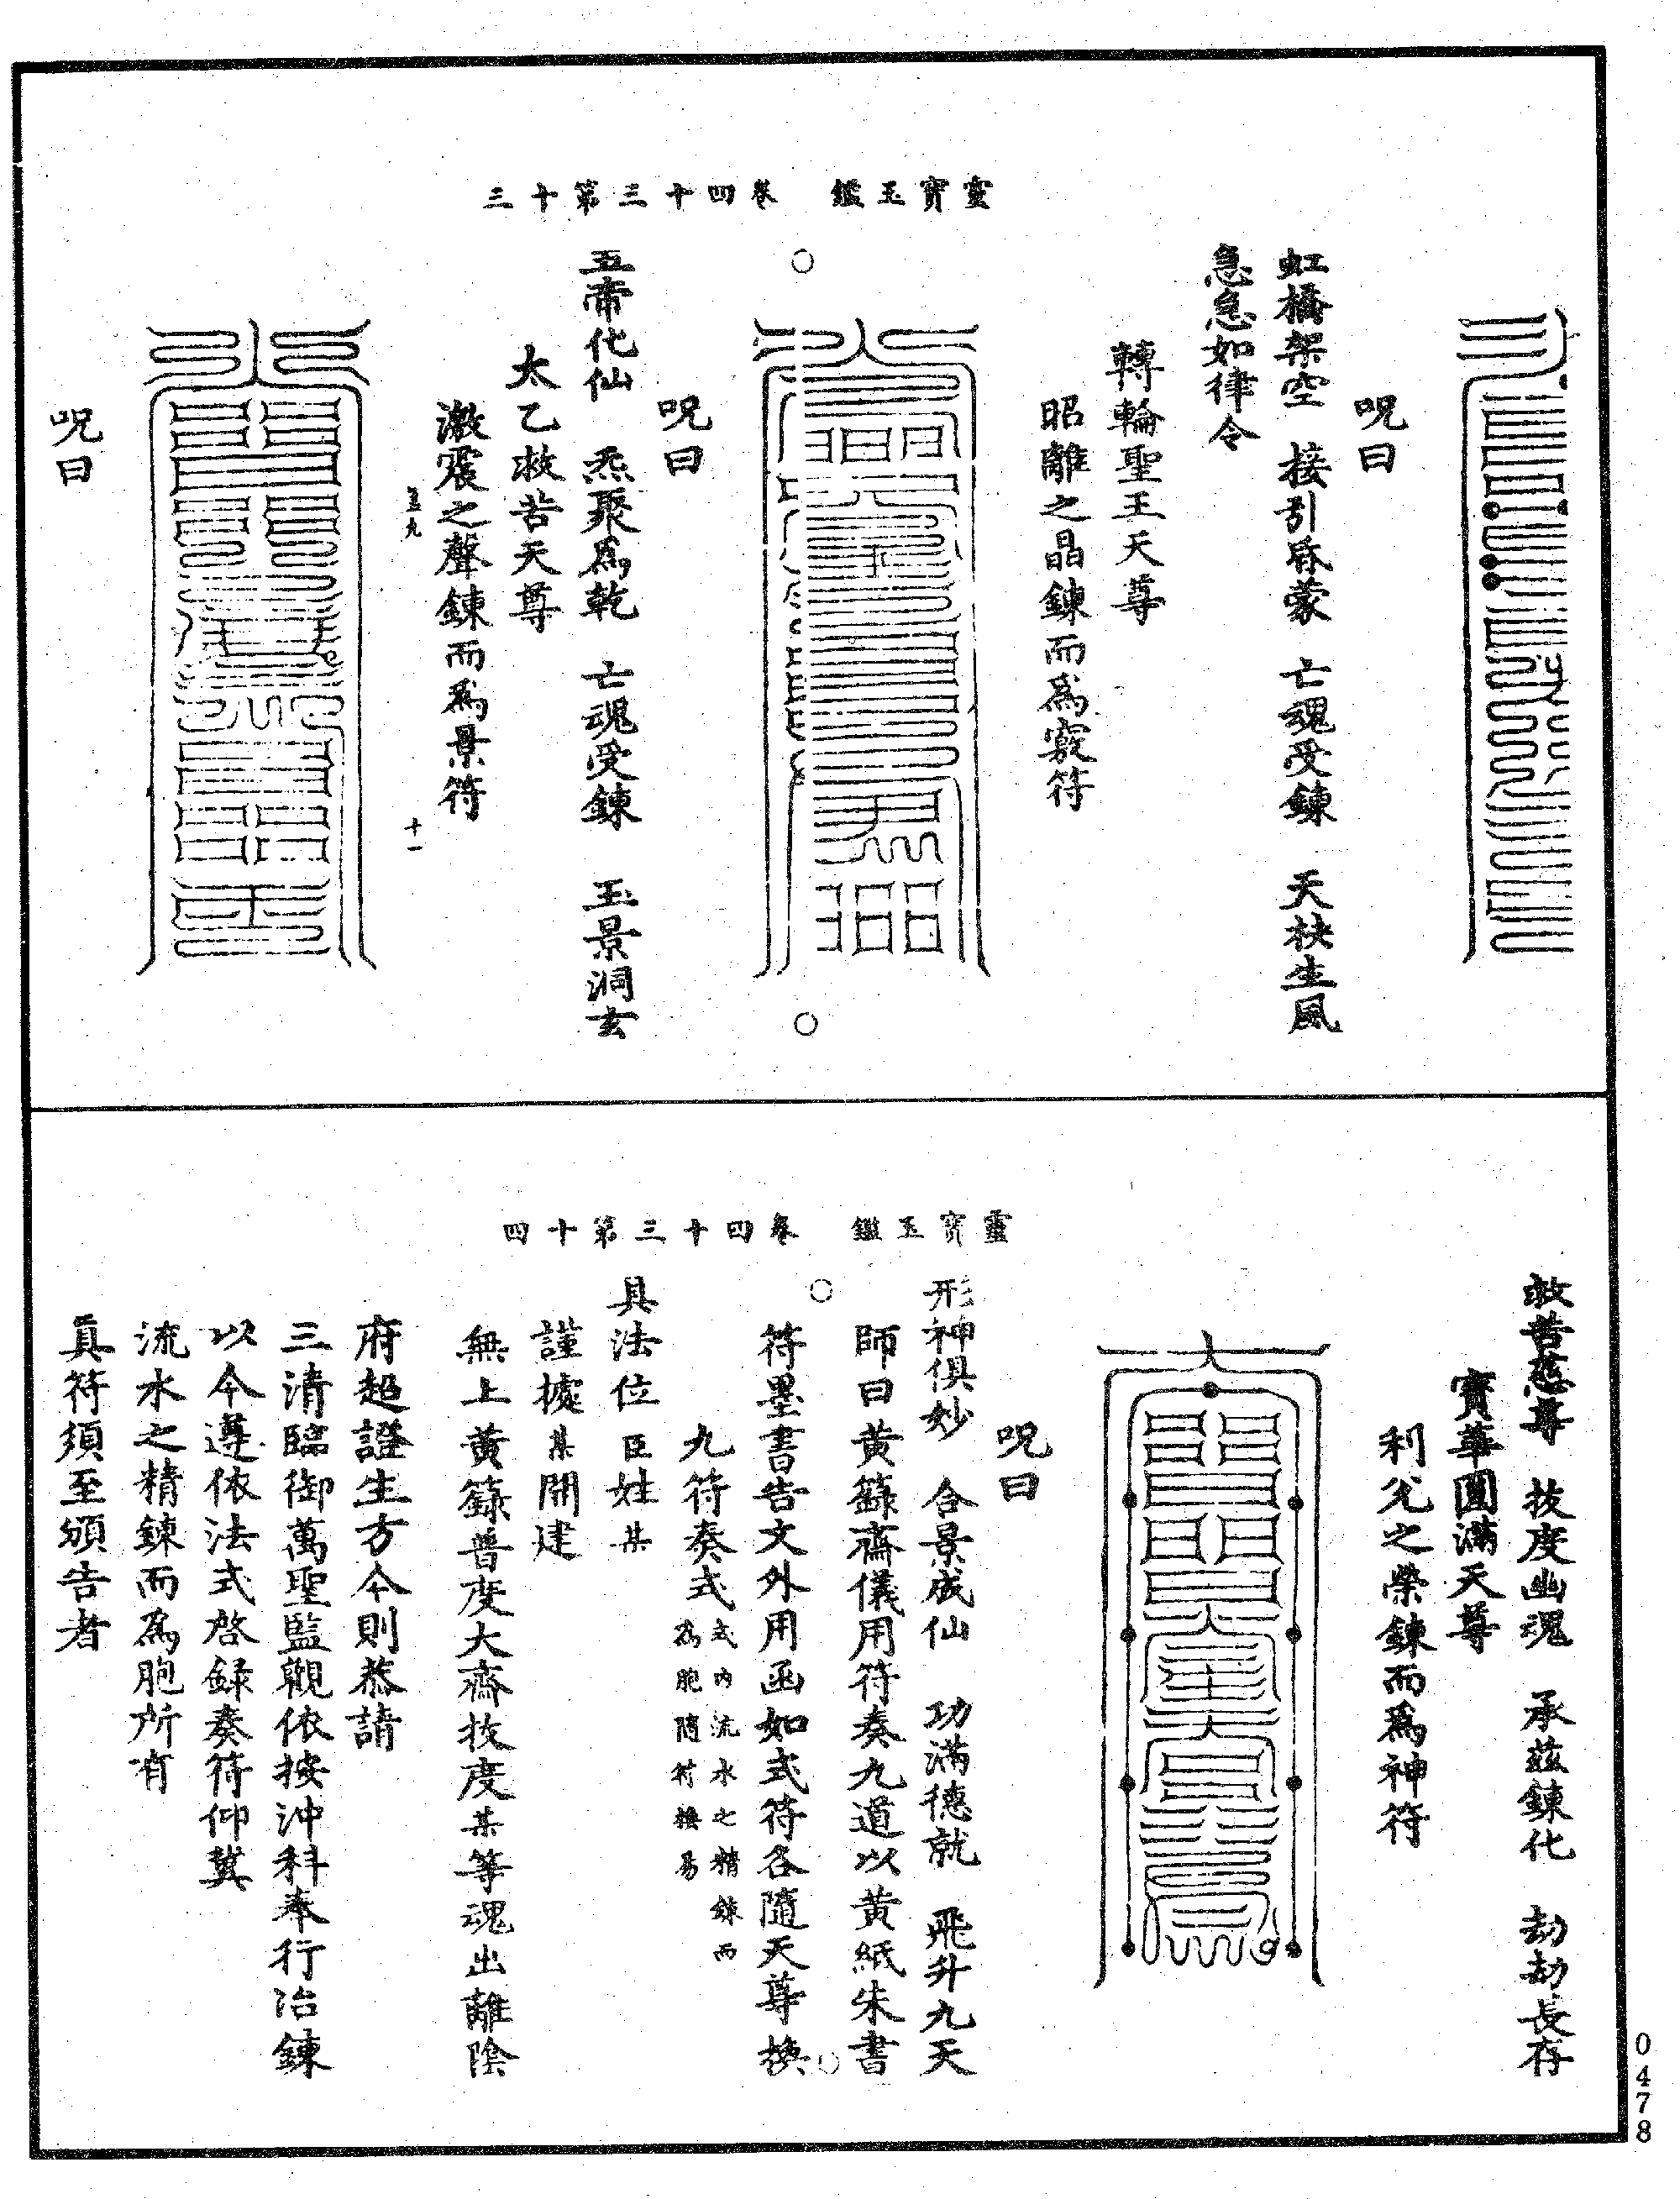 靈寶玉鑑　卷四十三第十三
呪曰
虹橋架空　接引昏蒙　亡魂受鍊　天枎生風
急急如律令
轉輪聖王天尊
昭離之晶鍊而爲竅符
呪曰
五帝化仙　炁聚爲乾　亡魂受鍊　玉景洞玄
太乙救苦天尊
激震之聲鍊而爲景符
十一
呪曰
靈寶玉鑑　卷四十三第十四
救苦慈尊　拔度幽魂　承茲鍊化　劫劫長存
寶華圓滿天尊
利兊之榮鍊而爲神符
呪曰
形神俱妙　合景成仙　功滿德就　飛升九天
師曰黃籙齋儀用符奏九道以黃紙朱書
符墨書告文外用函如式符各隨天尊換
九符奏式式內流水之精鍊而爲胞隨符換易
具法位臣姓某
謹據某開建
無上黃籙普度大齋拔度某等魂出離陰
府超證生方今則恭請
三清臨御萬聖監觀依按沖科奉行冶鍊
以今遵依法式啓録奏符仰冀
流水之精鍊而爲胞所有
真符須至頒告者
0478